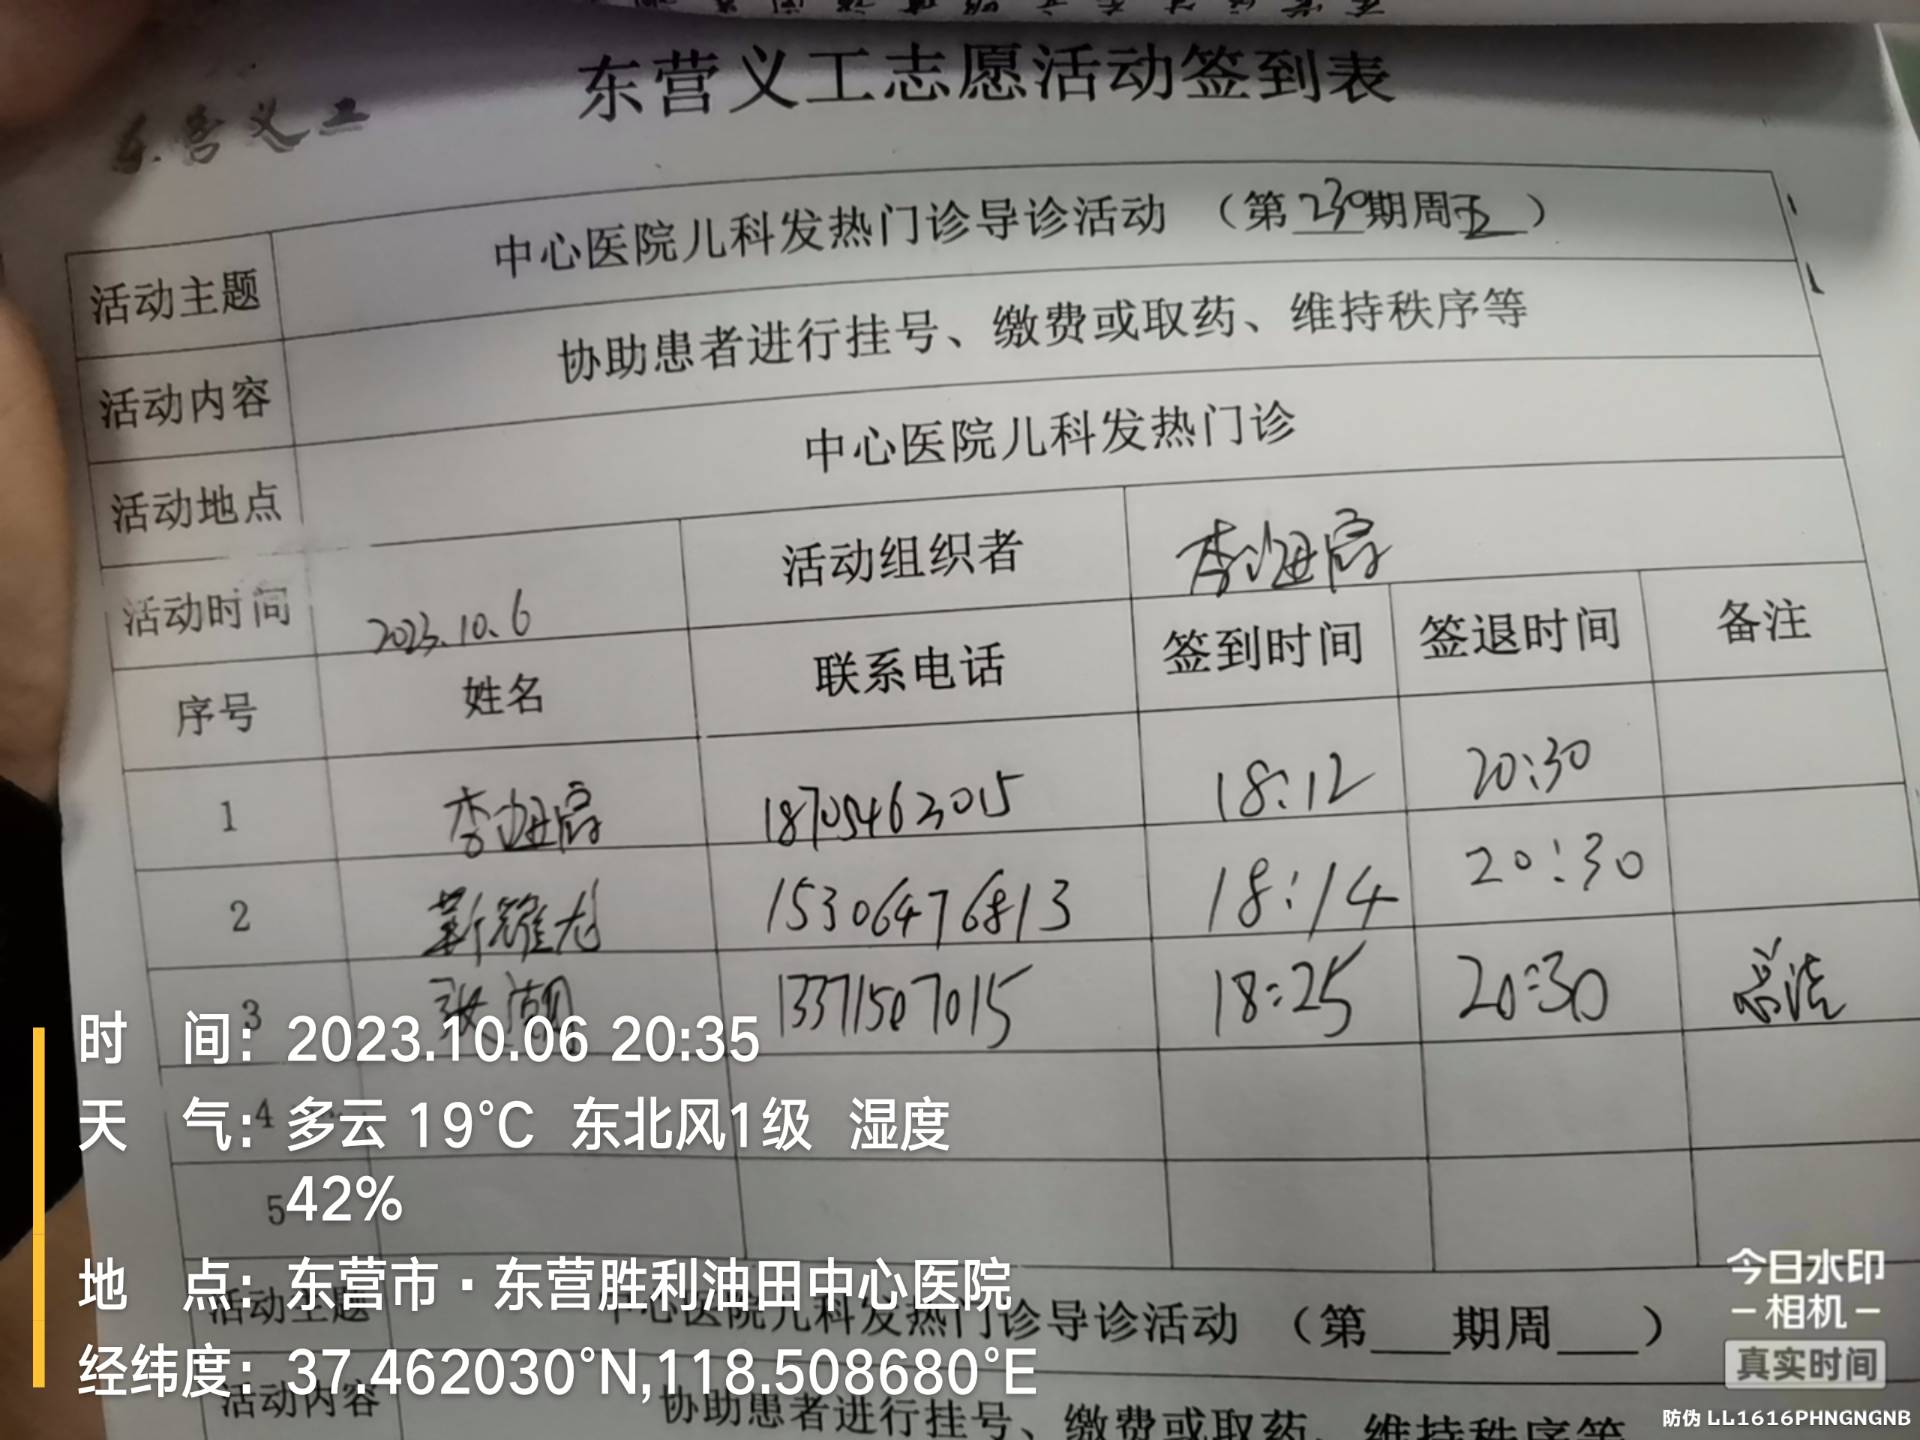 东营义工志愿活动签到表
东营义工
活动主题 中心医院儿科发热门诊导诊活动 (第230期周五)
活动内容 协助患者进行挂号、缴费或取药、维持秩序等
活动地点 中心医院儿科发热门诊
活动时间 2023.10.6 活动组织者
序号 姓名 联系电话 签到时间 签退时间 备注
1 18705463015 18:12 20:30
2 靳耀龙 15306476813 18:14 20:30
3 张潮 13371507015 18:25 20:30 总结
4
5
活动主题 中心医院儿科发热门诊导诊活动 (第___期周___)
活动内容 协助患者进行挂号、缴费或取药、维持秩序等
时 间: 2023.10.06 20:35
天 气: 多云 19°C 东北风1级 湿度
42%
地 点: 东营市·东营胜利油田中心医院
经纬度: 37.462030°N,118.508680°E
今日水印
-相机-
真实时间
防伪 LL1616PHNGNGNB